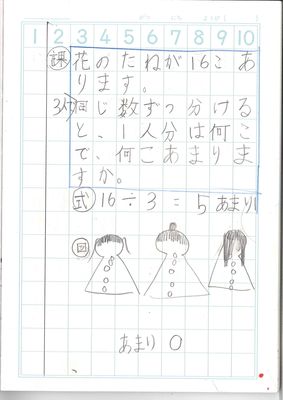 1 2 3 4 5 6 7 8 9 10
課 花のたねが16こあ
ります。
3人で同じ数ずつ分ける
と、1人分は何こ
で、何こあまりま
すか。
式 16÷3=5あまり1
図
あまり